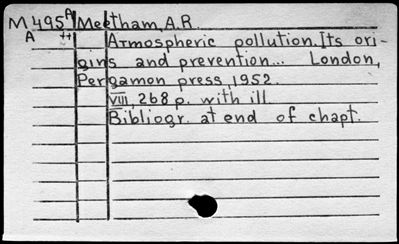 M495 A Meetham, A.R.
A H Atmospheric pollution. Its ori-
gins and prevention... London,
Pergamon press, 1952.
VIII, 268 p. with ill.
Bibliogr. at end of chapt.